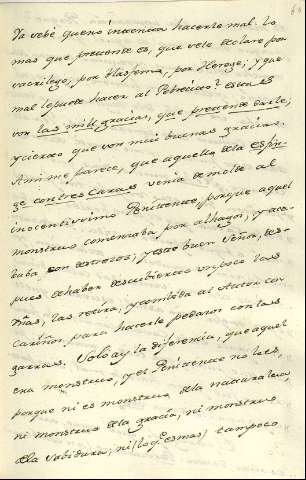 Ya vebé queno intenta hacerle mal: lo
mas que pretende es, que vele declare por
vacrilego, por blasfemo, por Herege; y que
mal lepuede hacer al Peticuio? estas
son las mill gracias, que pretende darle,
ycierto que son mui buenas gracias.
Ami me parece, que aquello dela esfin-
ge con tres Caras venia demolde al
inocentissimo Penitente, porque aquel
monstruo comenzaba por alhagos, y aca-
baba con destrozos; y este buen Señor, des-
pues dehaber descubierto unpoco las
uñas, las retira, y combida al Autor con
Cariños para hacerle pedazos con las
garras. Solo ay la diferencia, que aquel
era monstruo, y el Penitente no lo es,
porque ni es monstruo dela naturaleza,
ni monstruo dela gracia, ni monstruo
dela sabiduria, ni (loq.e es mas) tampoco